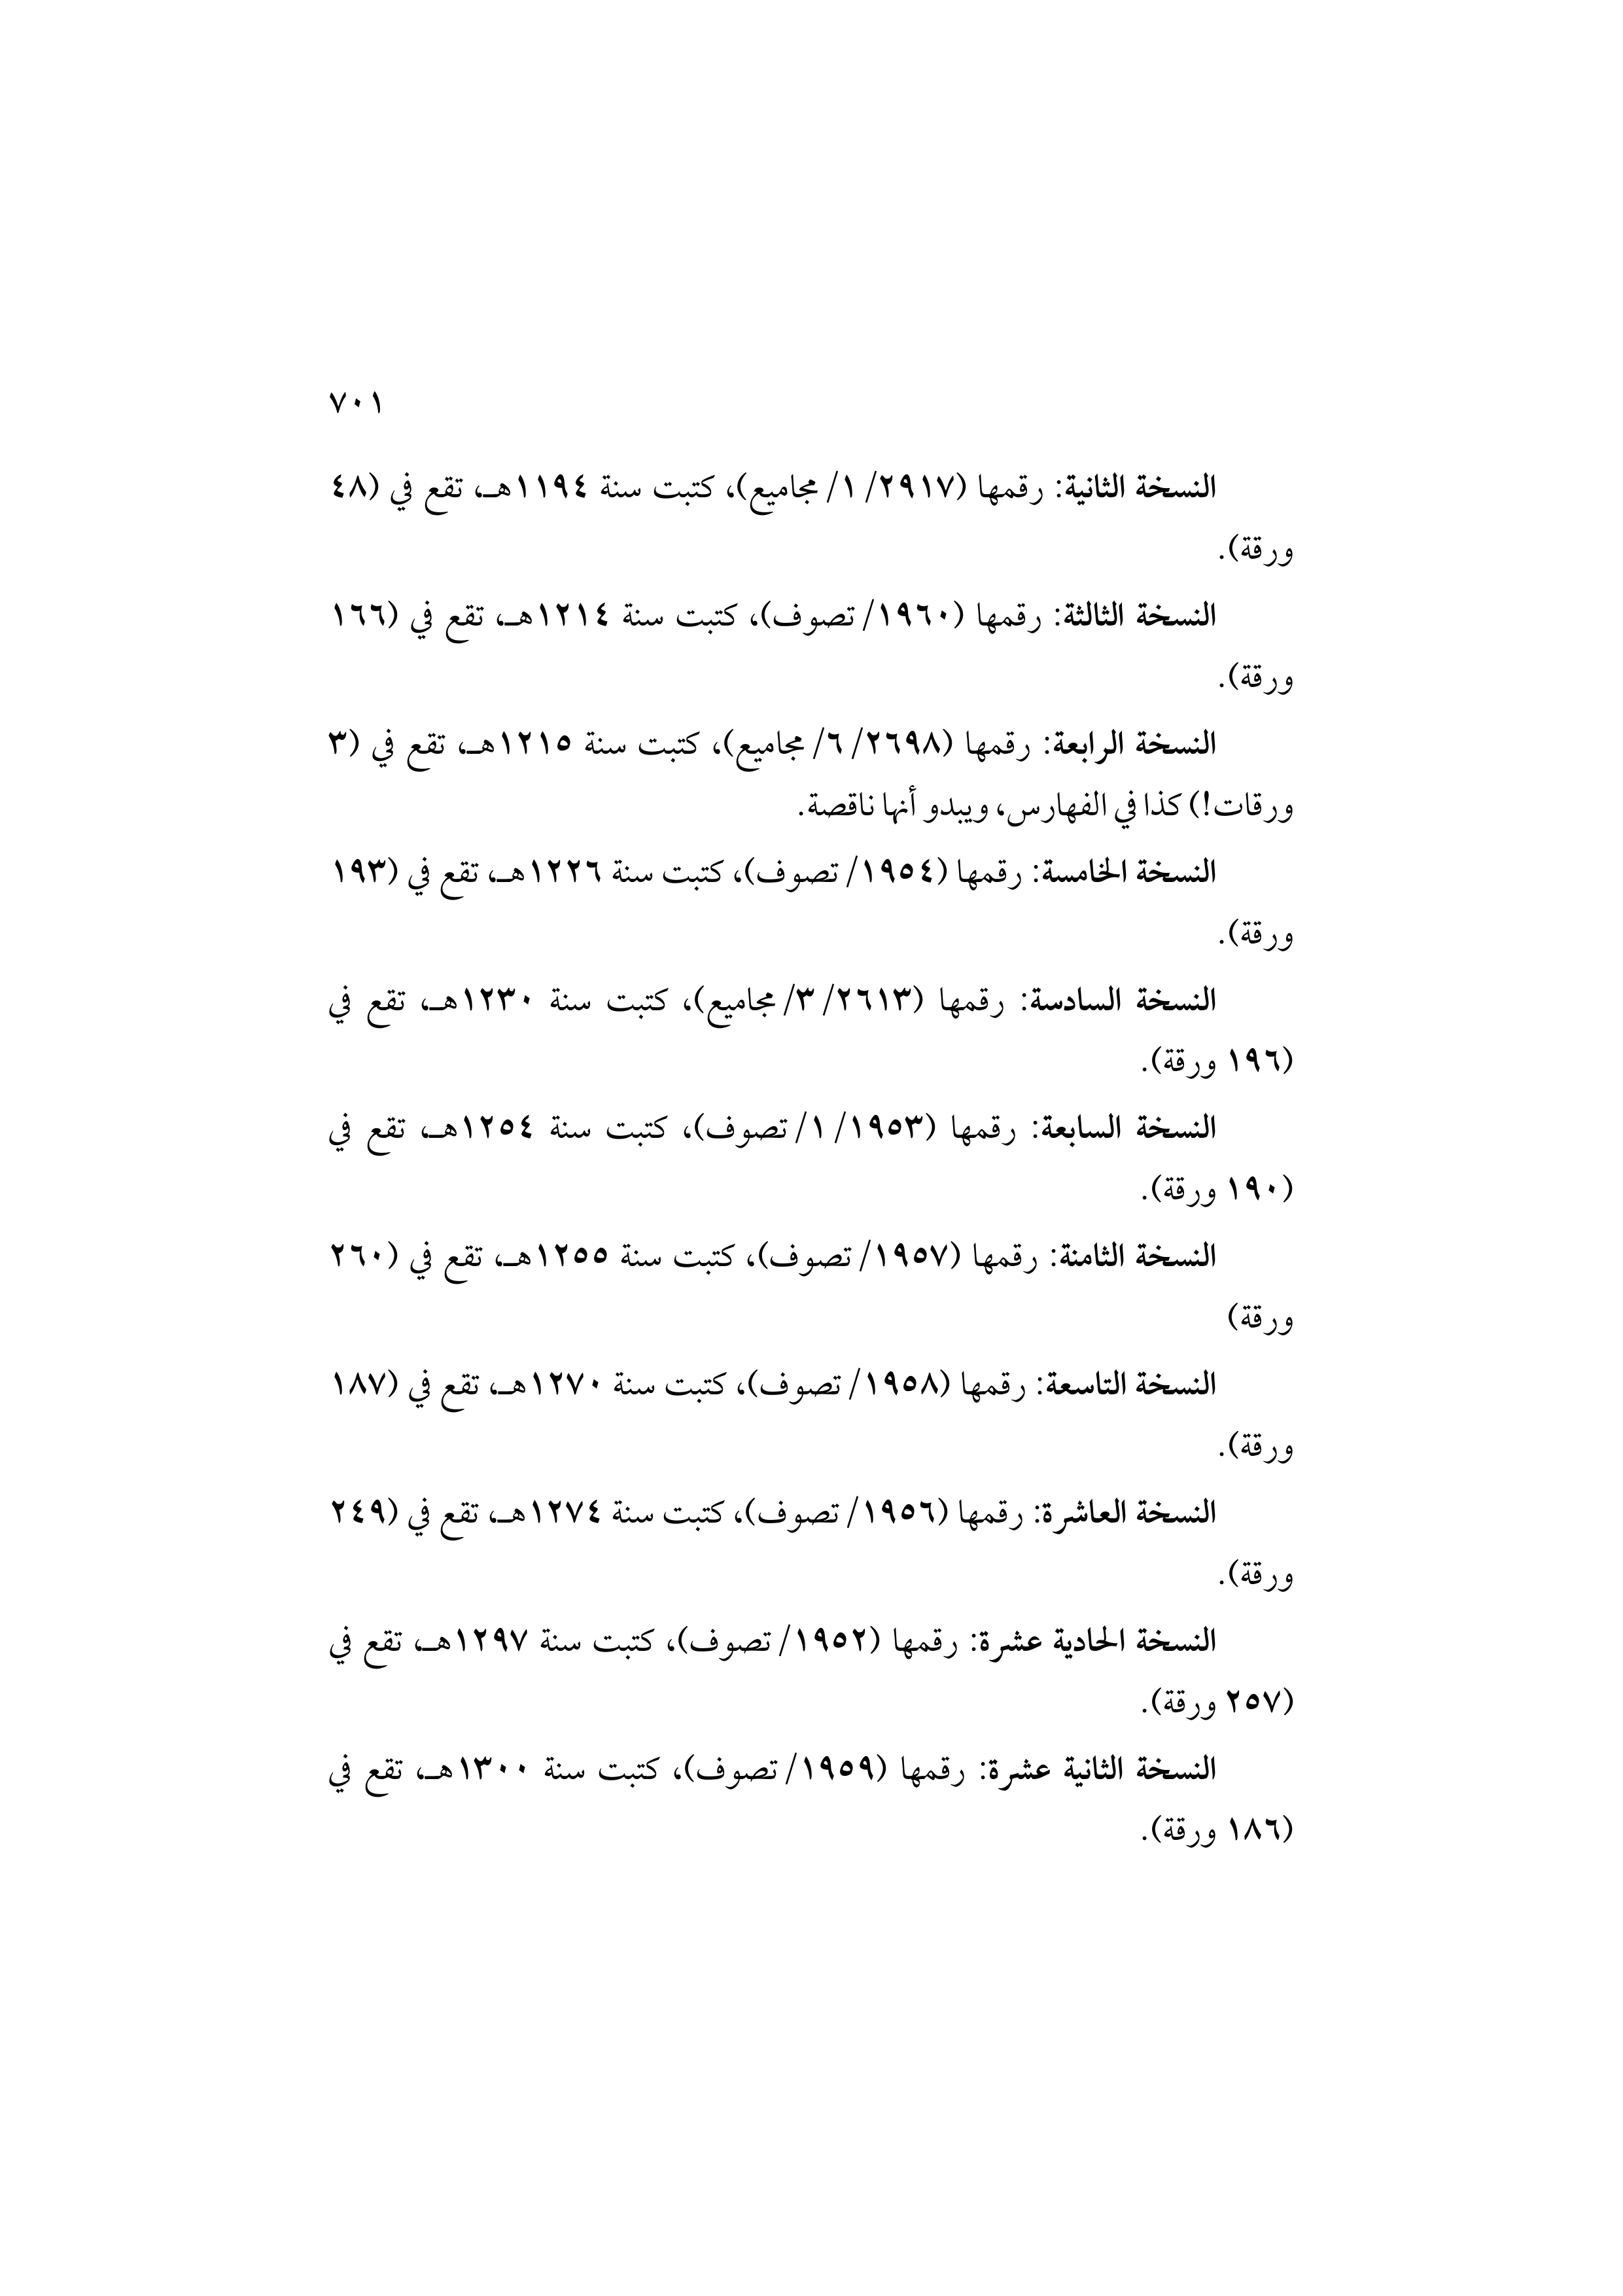 ٧٠١
النسخة الثانية: رقمها (٢٩١٧/ ١/ مجاميع)، كتبت سنة ١١٩٤هـ، تقع في (٤٨
ورقة).
النسخة الثالثة: رقمها (١٩٦٠/ تصوف)، كتبت سنة ١٢١٤هـ، تقع في (١٦٦
ورقة).
النسخة الرابعة: رقمها (٢٦٩٨/ ٦/ مجاميع)، كتبت سنة ١٢١٥هـ، تقع في (٣
ورقات!) كذا في الفهارس، ويبدو أنها ناقصة.
النسخة الخامسة: رقمها (١٩٥٤/ تصوف)، كتبت سنة ١٢٢٦هـ، تقع في (١٩٣
ورقة).
النسخة السادسة: رقمها (٢٦١٣/ ٣/ مجاميع)، كتبت سنة ١٢٣٠هـ، تقع في
(١٩٦ ورقة).
النسخة السابعة: رقمها (١٩٥٣/ ١/ تصوف)، كتبت سنة ١٢٥٤هـ، تقع في
(١٩٠ ورقة).
النسخة الثامنة: رقمها (١٩٥٧/ تصوف)، كتبت سنة ١٢٥٥هـ، تقع في (٢٦٠
ورقة)
النسخة التاسعة: رقمها (١٩٥٨/ تصوف)، كتبت سنة ١٢٧٠هـ، تقع في (١٨٧
ورقة).
النسخة العاشرة: رقمها (١٩٥٦/ تصوف)، كتبت سنة ١٢٧٤هـ، تقع في (٢٤٩
ورقة).
النسخة الحادية عشرة: رقمها (١٩٥٢/ تصوف)، كتبت سنة ١٢٩٧هـ، تقع في
(٢٥٧ ورقة).
النسخة الثانية عشرة: رقمها (١٩٥٩/ تصوف)، كتبت سنة ١٣٠٠هـ، تقع في
(١٨٦ ورقة).